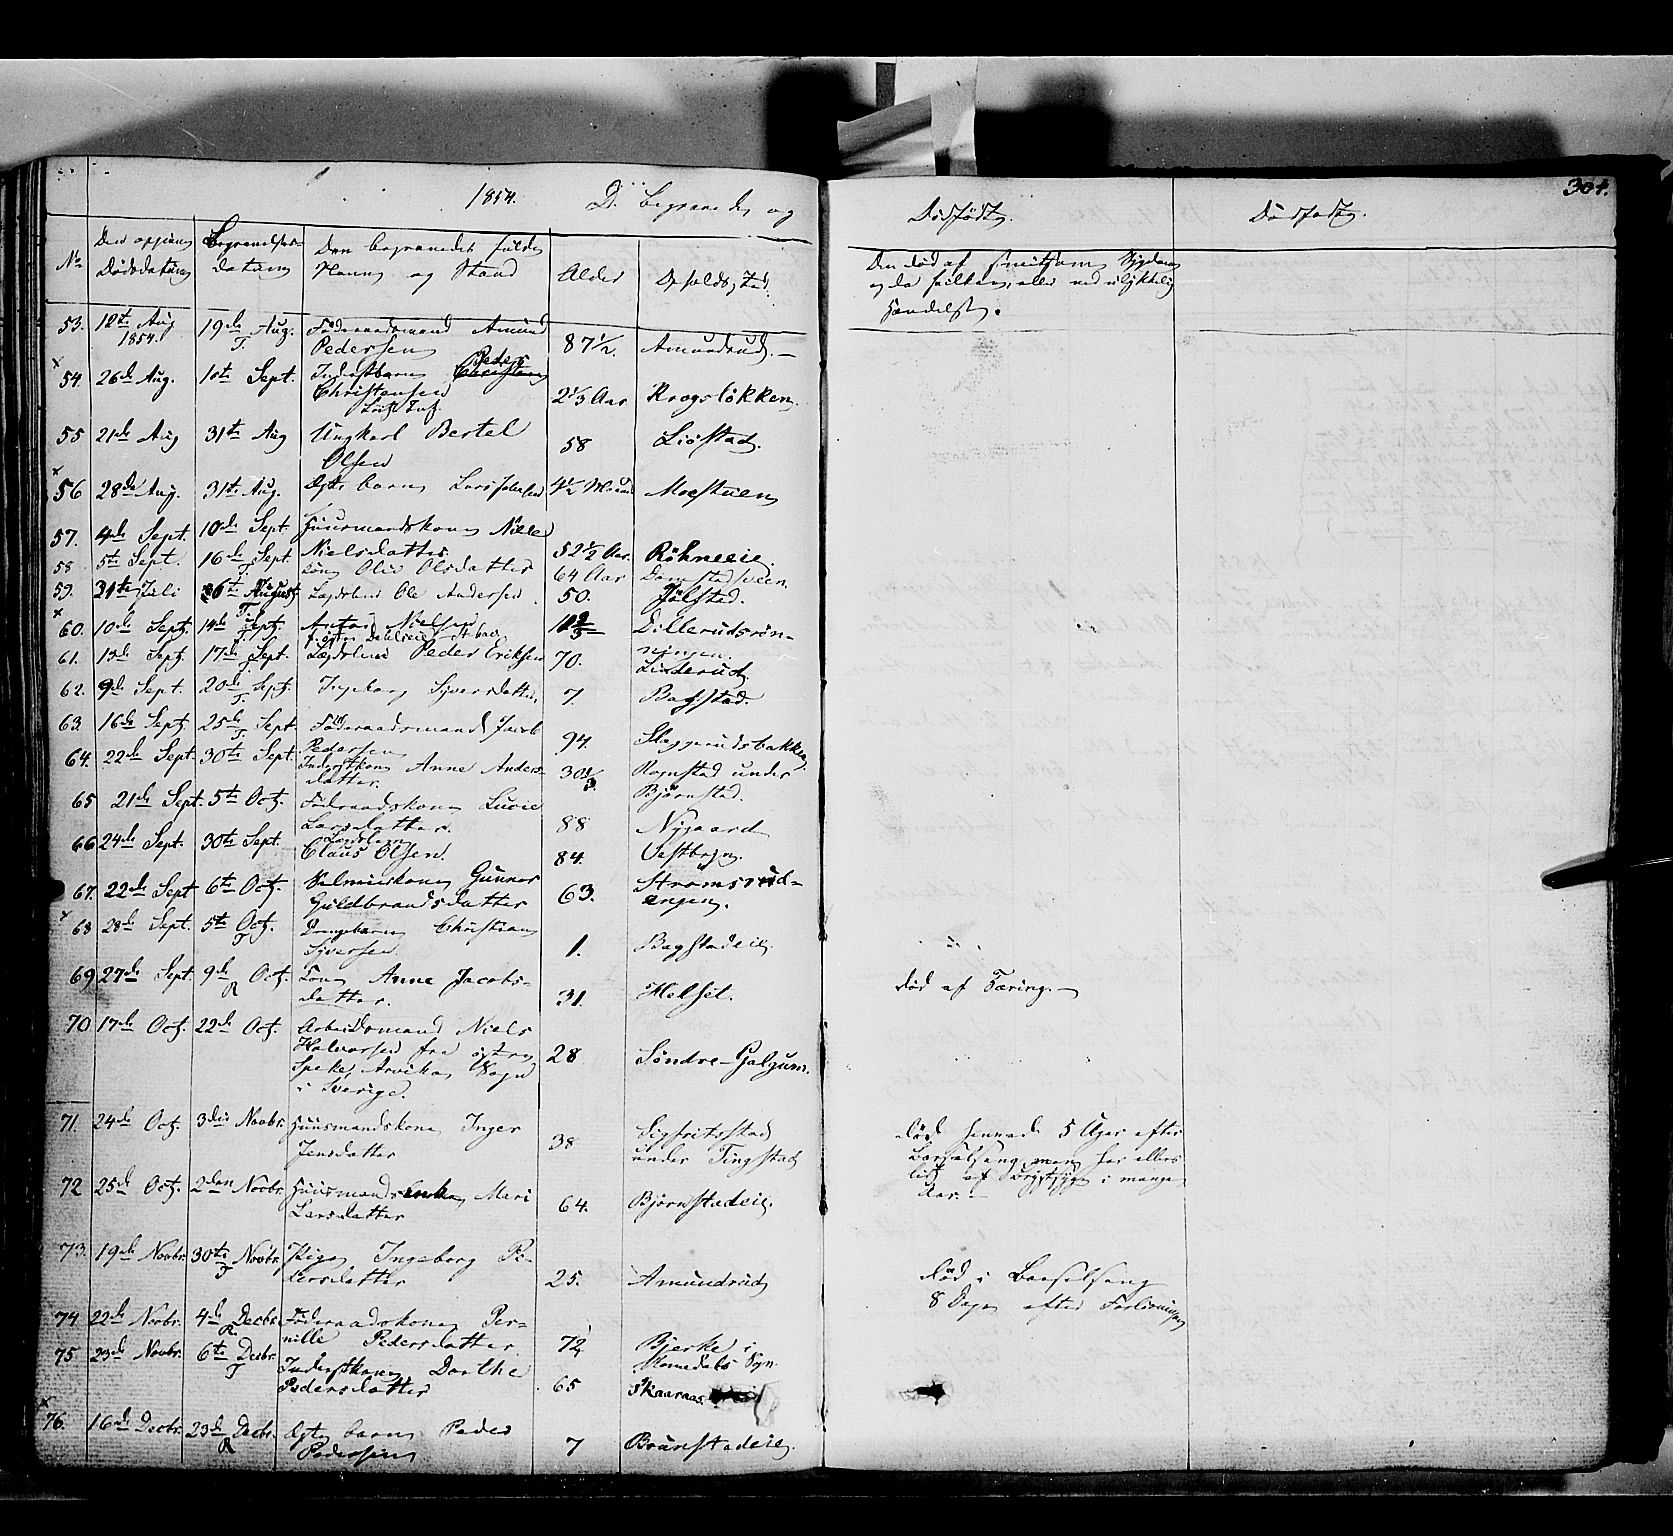 1854.
De Begravede og
Dødfødte.
Dødfødte.
304.
No
Den opgivne
Dødsdatum
Begravelses-
datum
Den begravedes fulde
Navn og Stand
Alder
Opholds Sted.
Den død af smitsom Sygdom
eller ved ulykkelig
Hændelse.
53. 12te Aug 1854. 19de Aug. T. Föderaadsmand Amund
Pedersen 87 1/2. Amundrud.
x
54. 26de Aug. 10t Sept. Inderstbarn Peder
Christensen 2 1/3 Aar Krogsløkken.
55 21de Aug 31te Aug Ungkarl Bertel
Olsen 58 Liøstad.
x
56 28de Aug. 31te Aug. Ægte barn 4 1/2 Moestuen
57. 4de Sept. 10de Sept. Huusmandskone
Nielsdatter 52 1/2 Aar. Röhneeie.
58 5te Sept. 16de Sept. T. Olsdatter 64 Aar
59. 31te Juli August T. Lægdslem Ole Andersen 50. Jølstad.
x
60. 10de Sept. 14de Sept. T. Anton Nielsen Dillerudsrøn-
ningen.
61. 13de Sept. 17de Sept. Lægdslem Peder Eriksen 70. Linderud.
62. 9de Sept. 20de Sept. T. Ingeborg Syversdatter 7 Bagstad.
63. 16de Sept. 25de Sept. T. Föderaadsmand Jacob
Pedersen 94. Sloggerudsbakken.
64. 22de Sept. 30te Sept. Inderstkone Anne Anders-
datter. 30 1/3. Rognstad under
Bjørnstad.
65 21de Sept. 5te Oct. Föderaadskone Lucie
Larsdatter. 88 Nygaard
66 24de Sept. 30te Sept. Lægdslem
Claus Olsen. 84. Vestbyen.
67. 22de Sept 6te Oct. Selveierkone Gunnor
Guldbrandsdatter 63. Strømsrud-
engen.
x
68 28de Sept. 5te Oct. T Drengebarn Christian
Syversen 1. Bagstadeie.
69 27de Sept. 9de Oct. R Kone Anne Jacobs-
datter. 31. Helset. død af Tæring.
70 17de Oct. 22de Oct. Arbeidsmand Niels
Halvorsen fra
Arvika Sogn
i Sverige. 28 Søndre-Galgum.
71. 24de Oct. 3die Novbr. Huusmandskone Inger
Jensdatter 38 Sigfritsstad
under Tingstad
død 5 Uger efter
Barselseng, men har ellers
lidt af Brystsyge i mange
Aar.
72 25de Oct. 2den Novbr. Huusmandsenke Mari
Larsdatter 64. Bjørnstadeie.
73. 19de Novbr. 30te Novbr. T Pige Ingeborg Pe-
dersdatter 25. Amundrud
død i Barselseng
8 Dage efter Forløsningen
74 22de Novbr. 4de Decbr. R. Föderaadskone Per-
nille Pedersdatter. 72 Bjerke i
Romedals Sogn
75 23de Novbr. 6te Decbr. T Inderstkone Dorthe
Pedersdatter 65 Skaaraas.
x
76. 16de Decbr. 23de Decbr. R Ægte barn Peder
Pedersen 7 Brunstadeie.